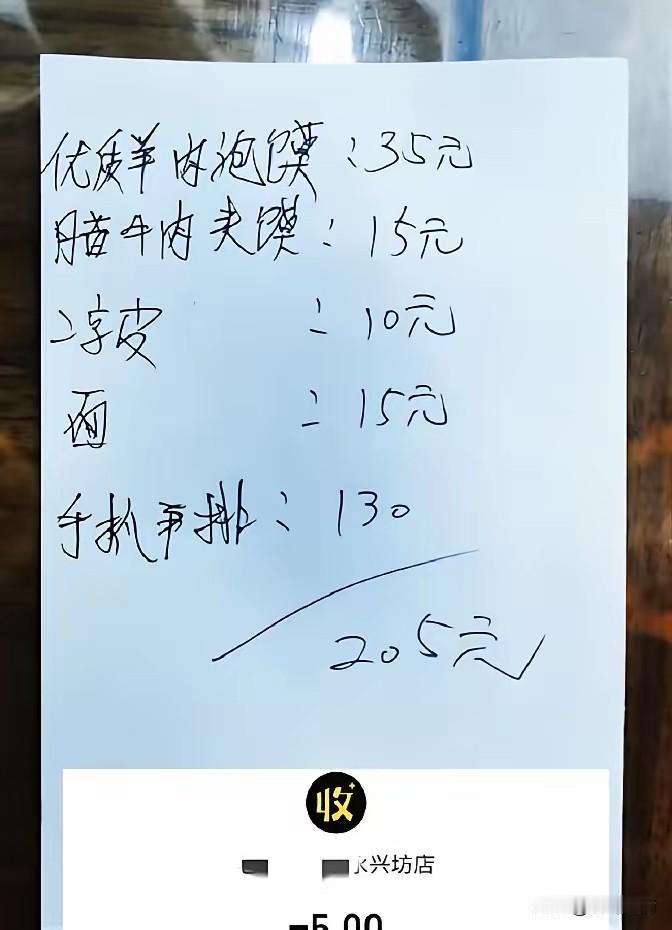 优质羊肉泡馍：35元
腊牛肉夹馍：15元
二字皮：10元
面：15元
手扒羊排：130
205元
收
永兴坊店
-5.00